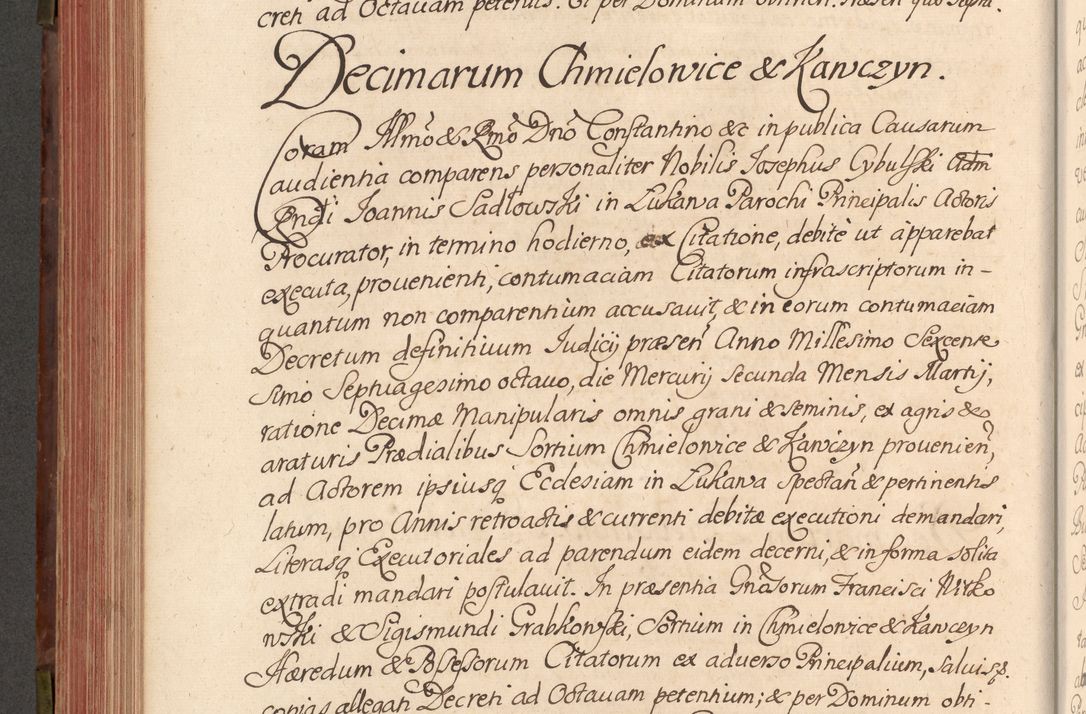 creti ad Octauam petentis. Et per Dominum obtinen. Præsen quo supra.
Decimarum Chmielowice & Kawczyn.
Coram Illmo & Rmo Dno Constantino &c in publica Causarum
audientia comparens personaliter Nobilis Josephus Cybulski Adm
Rndi Joannis Sadłowski in Lukawa Parochi Principalis Actoris
Procurator, in termino hodierno, ex Citatione, debitè ut apparebat
executa, prouenienti, contumaciam Citatorum infrascriptorum in-
quantum non comparentium accusauit, & in eorum contumaciam
Decretum definitiuum Iudicij præsen Anno Millesimo Sexcente
simo Septuagesimo octauo, die Mercurij secunda Mensis Martij,
ratione Decimæ Manipularis omnis grani & seminis, ex agris &
araturis Prædialibus Sortium Chmielowice & Kawczyn prouenien,
ad Actorem ipsiusq Ecclesiam in Lukawa spectan & pertinentis
latum, pro Annis retroactis & currenti debitæ executioni demandari,
Literasq Executoriales ad parendum eidem decerni, & in forma solita
extradi mandari postulauit. In præsentia Gnãsorum Francisci Witko
wski & Sigismundi Grabkowski, Sortium in Chmielowice & Kawczyn
Hæredum & Possessorum Citatorum ex aduerso Principalium, saluis
copias allegati Decreti ad Octauam petentium; & per Dominum obti-